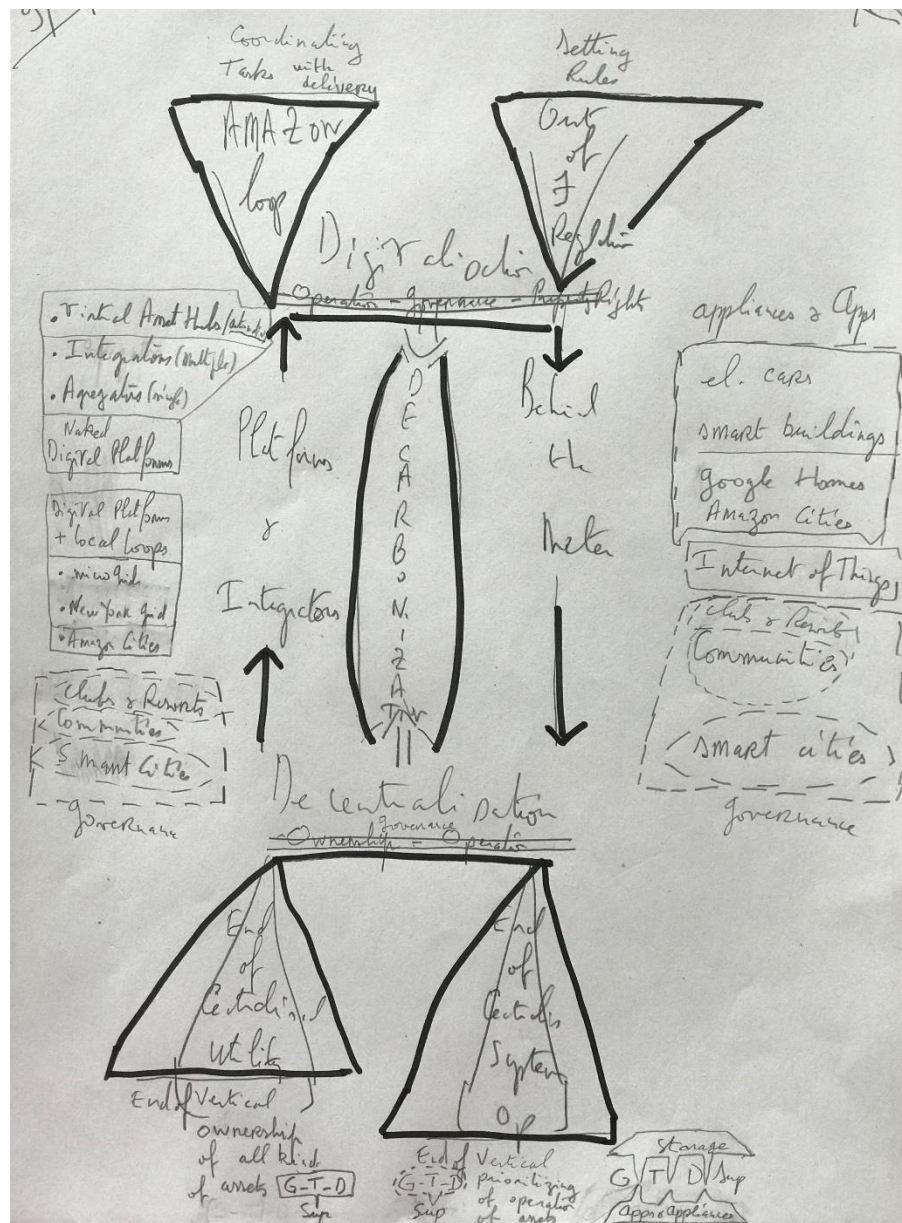 Coordinating
Tasks with
delivery
AMAZON
loop
Setting
Rules
Out
of
Digitalisation
Operation - governance - Property Rights
• Virtual Asset Hubs
• Integrators (multiple)
• Agregators (single)
Naked
Digital Platforms
Digital Platforms
+ local loops
• microgrids
• New York grid
• Amazon Cities
Clubs & Resorts
Communities
Smart Cities
governance
Platforms
&
Integrators
DECARBONIZATION
Behind
the
Meter
appliances & Apps
el. cars
smart buildings
google Homes
Amazon Cities
Internet of Things
Clubs & Resorts
Communities
smart cities
governance
Decentralisation
governance
Ownership - Operation
End
of
Centralised
Utility
End
of
Centralis
System
Op
End of Vertical
ownership
of all kind
of assets G-T-D
Sup
End of Vertical
prioritizing
of operation
of assets
G-T-D
Sup
Storage
G T D Sup
Apps & appliances